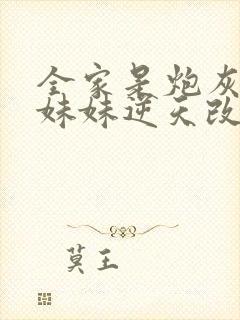 全家是炮灰
妹妹逆天改
莫王